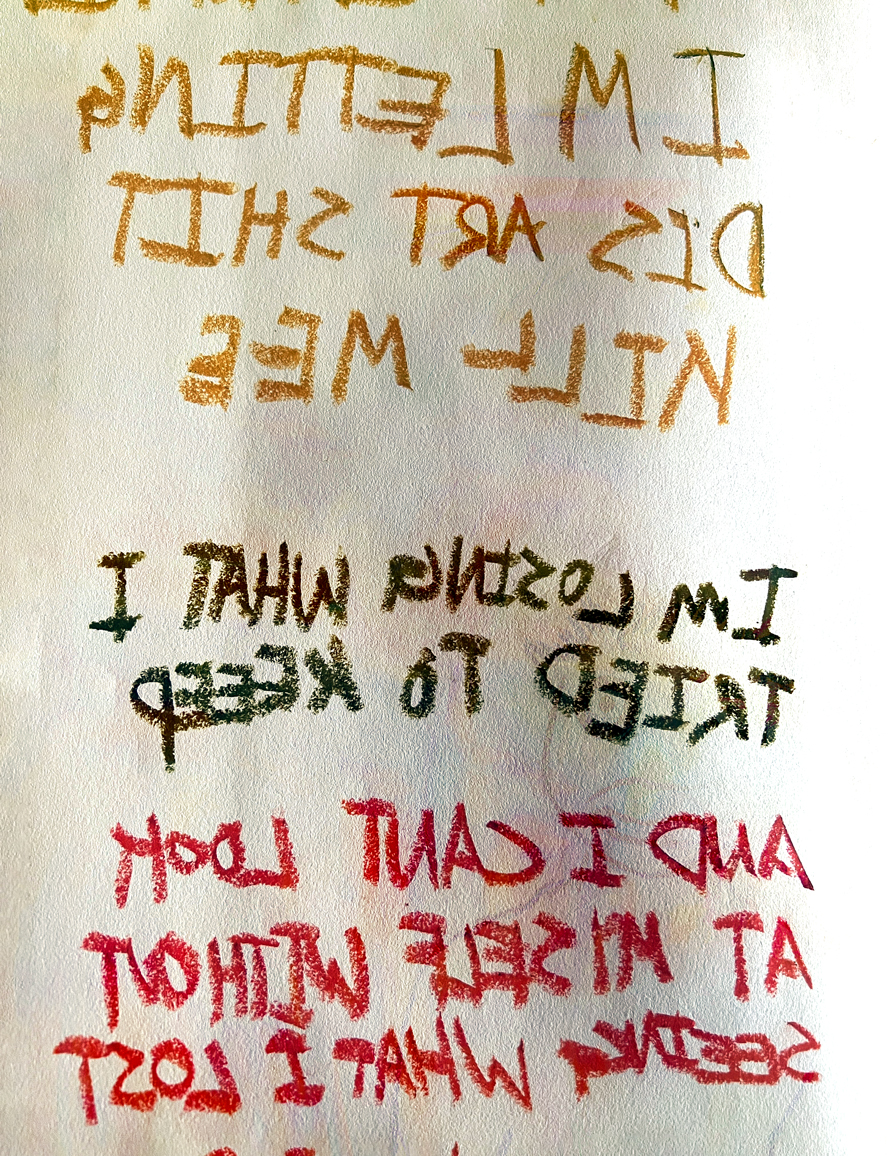 I'M LETTING
DIS ART SHIT
KILL MEE
I'M LOSING WHAT I
TRIED TO KEEP
AND I CANT LOOK
AT MYSELF WITHOUT
SEEING WHAT I LOST